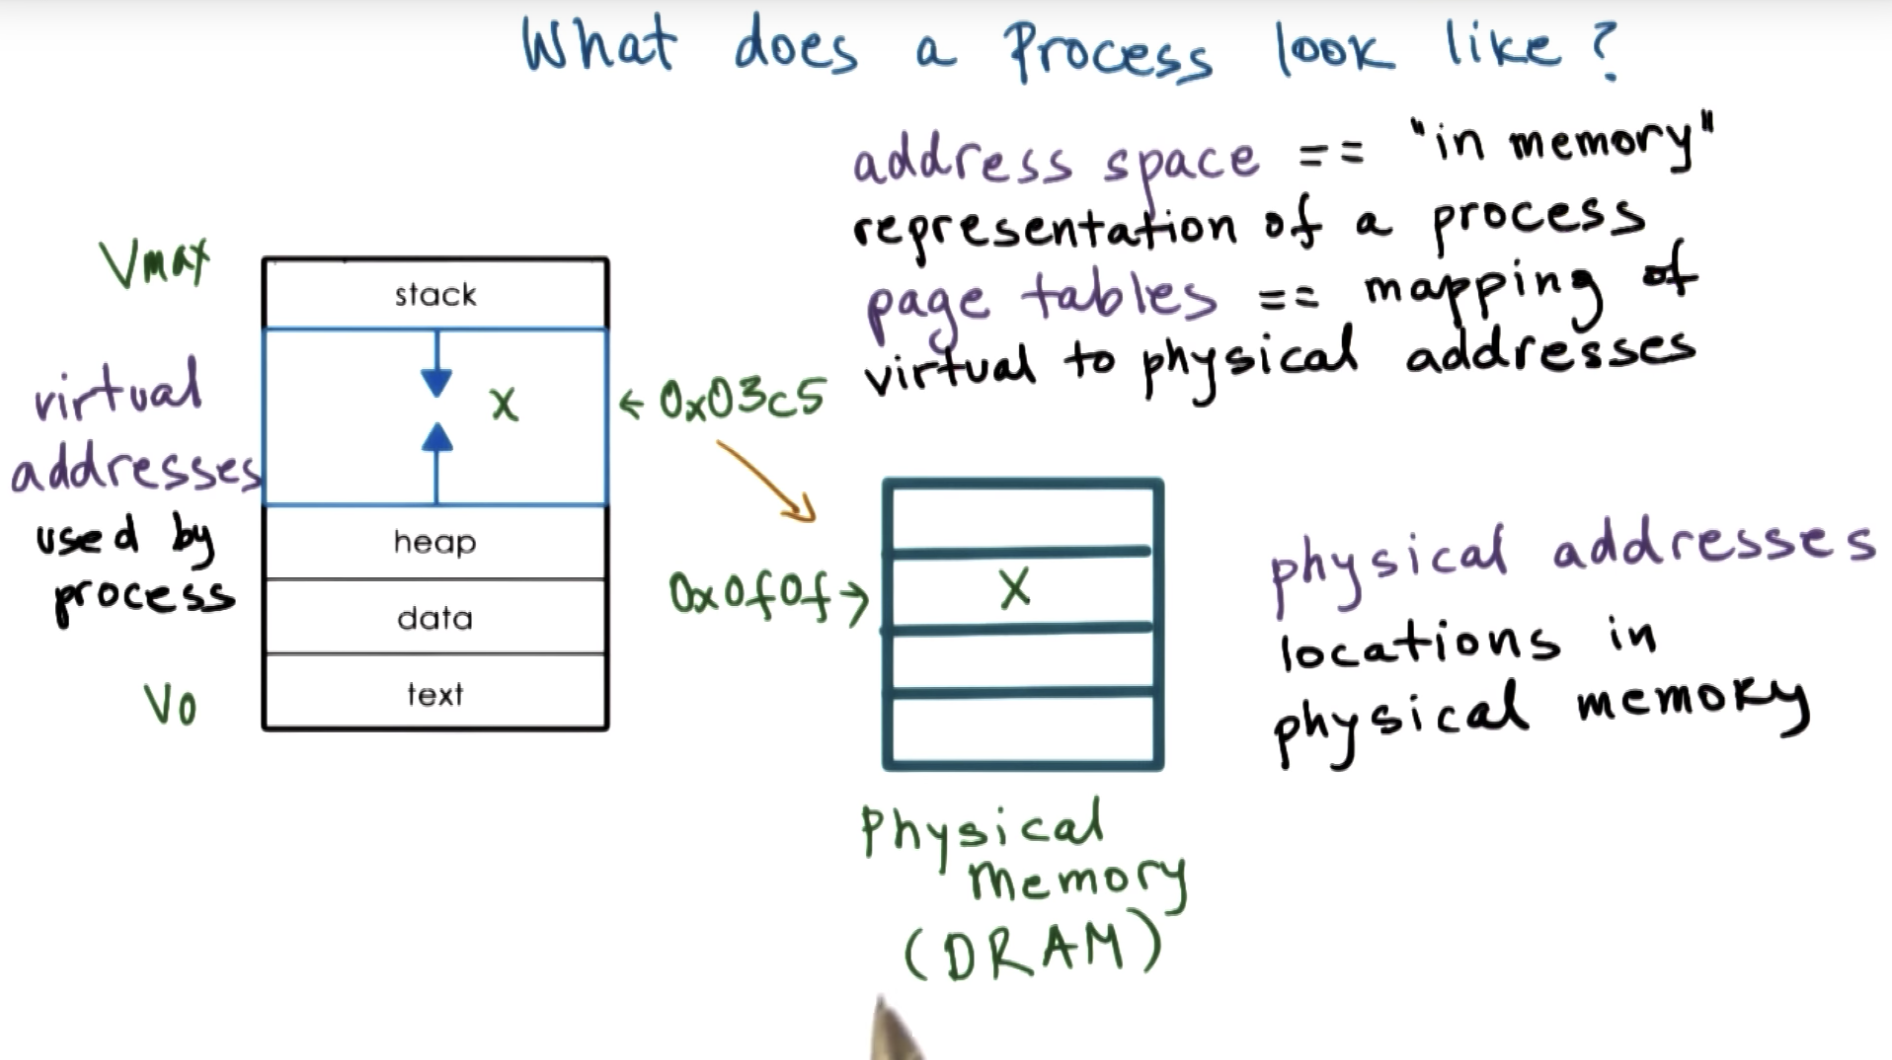 What does a Process look like?
address space == "in memory"
representation of a process
page tables == mapping of
virtual to physical addresses
Vmax
stack
virtual
addresses
used by
process
X
← 0x03c5
heap
data
V0
text
0x0f0f →
X
physical addresses
locations in
physical memory
Physical
Memory
(DRAM)